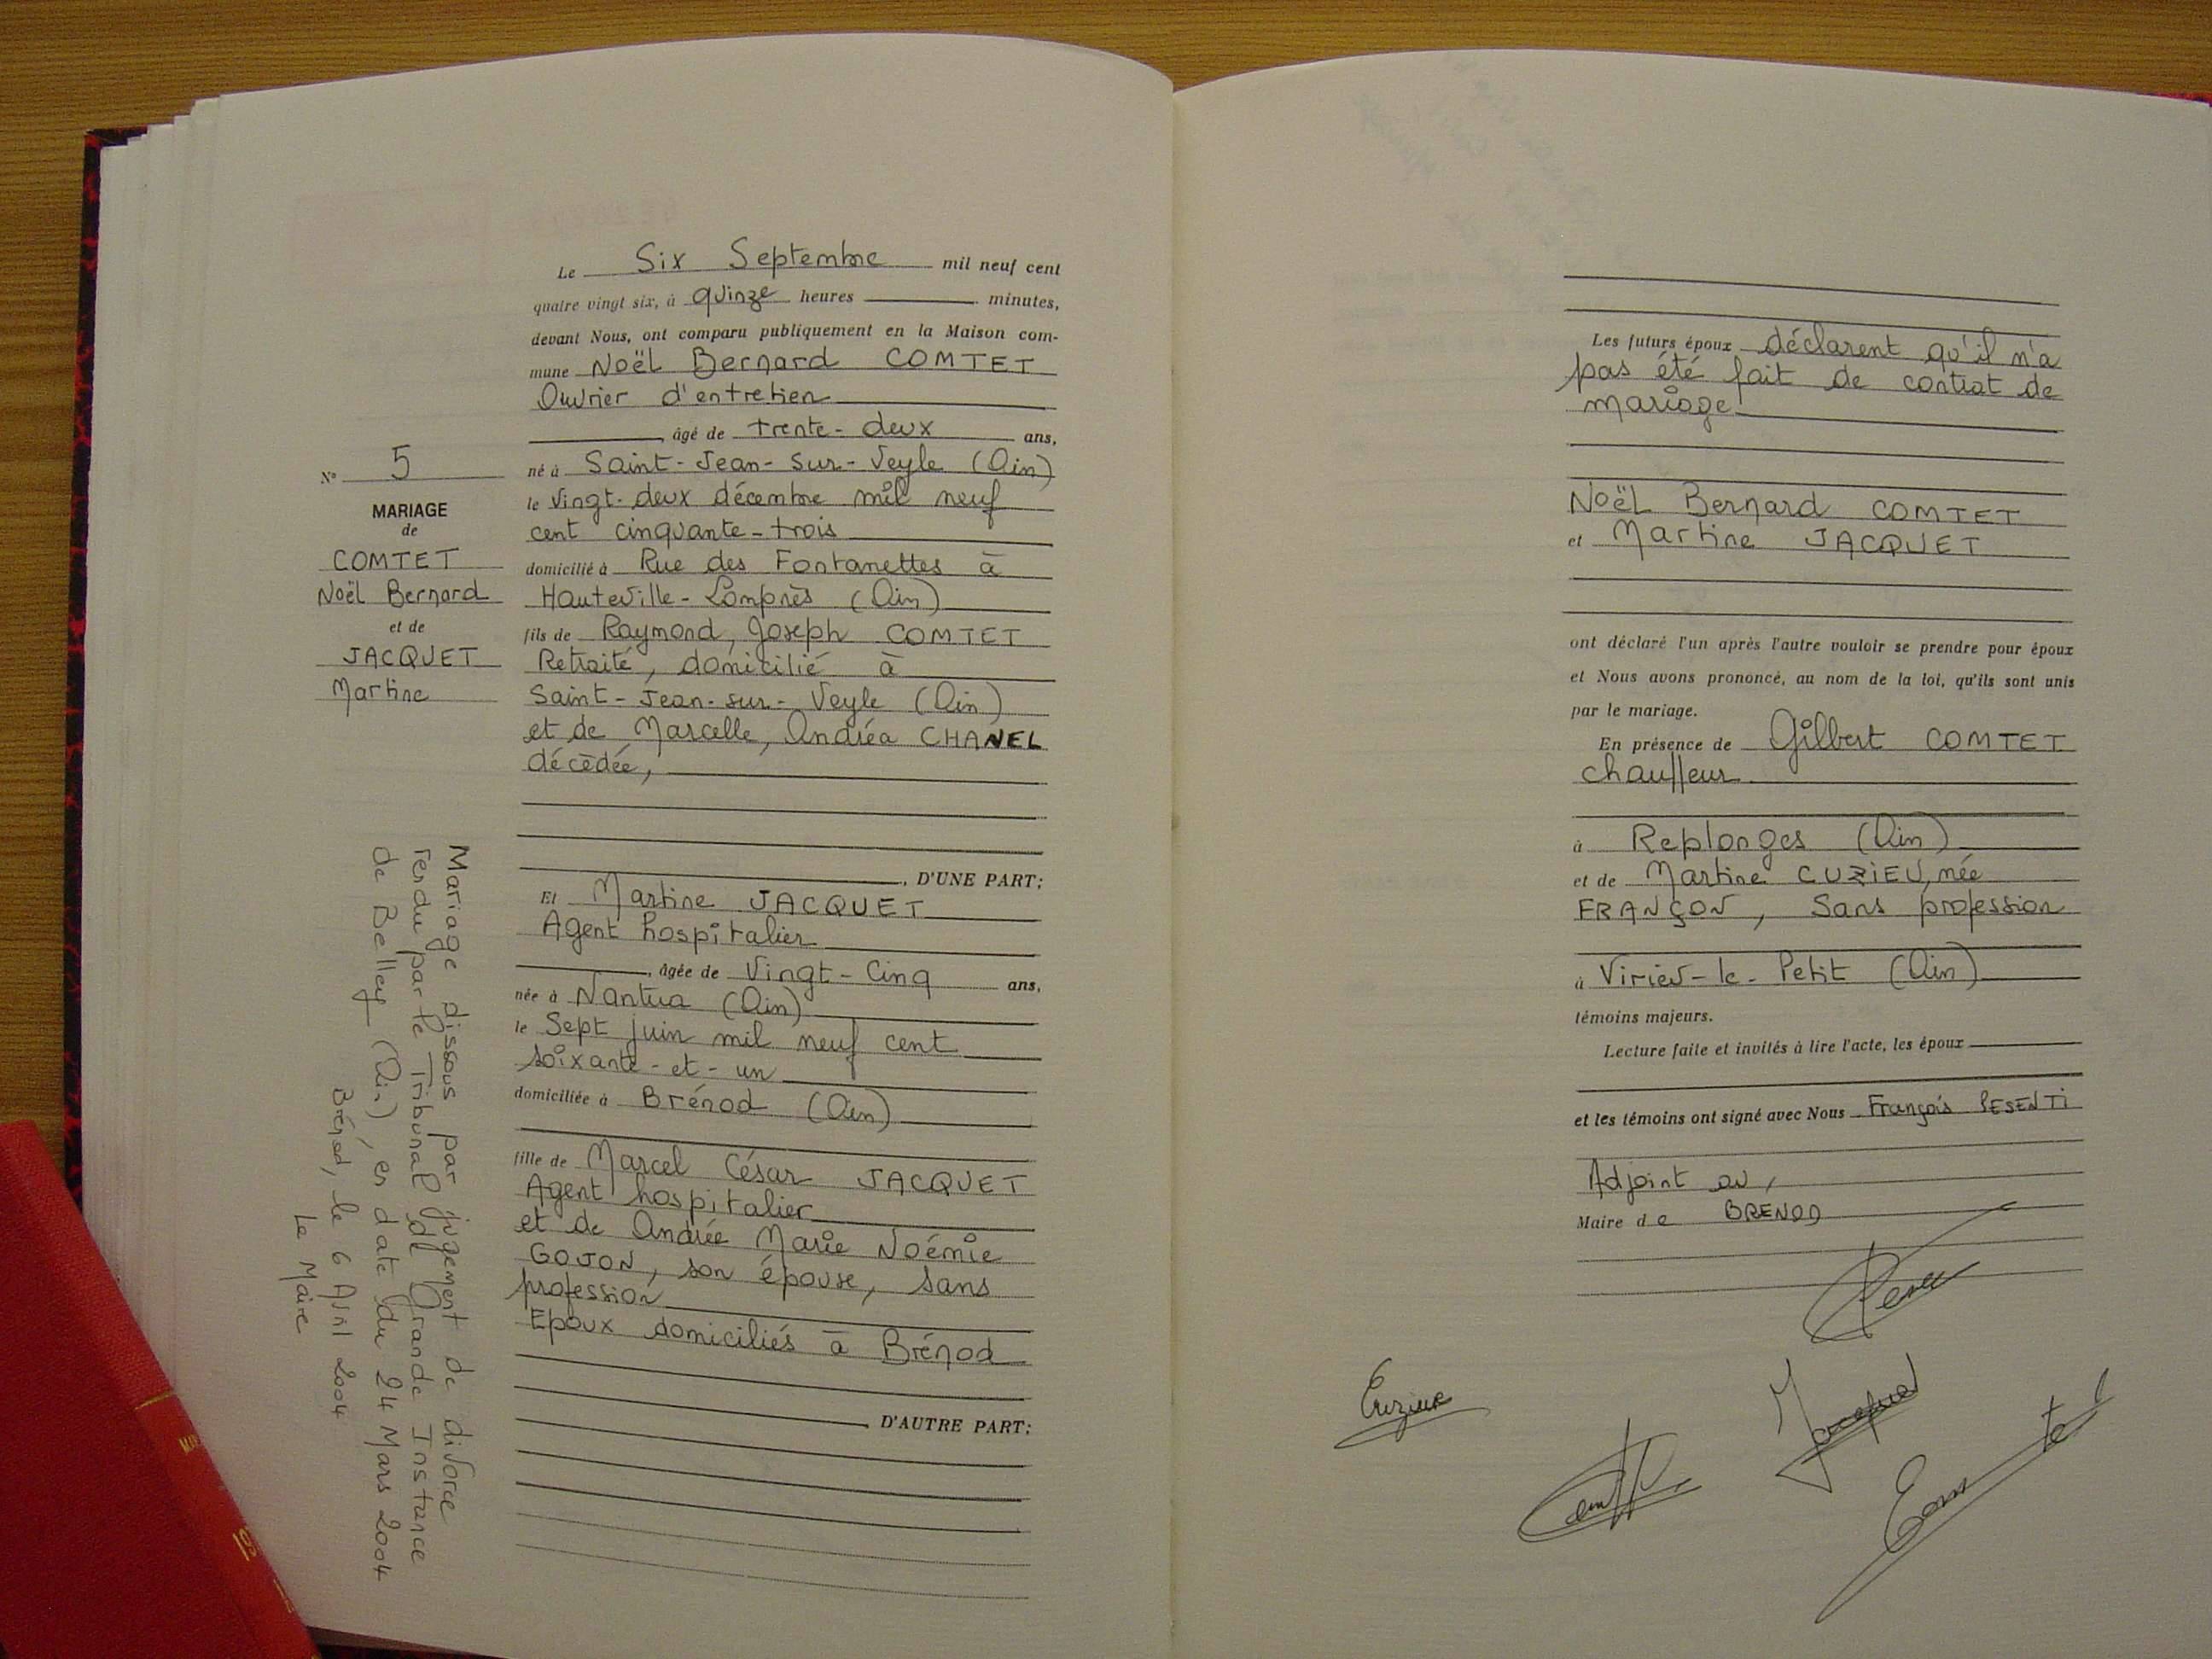 Le Six Septembre mil neuf cent
quatre vingt six, à quinze heures minutes,
devant Nous, ont comparu publiquement en la Maison com-
mune Noël Bernard COMTET
Ouvrier d'entretien
, âgé de trente-deux ans,
né à Saint-Jean-sur-Veyle (Ain)
le vingt-deux décembre mil neuf
cent cinquante-trois
domicilié à Rue des Fontanettes à
Hauteville-Lompnès (Ain)
fils de Raymond, Joseph COMTET
Retraité, domicilié à
Saint-Jean-sur-Veyle (Ain)
et de Marcelle, Andréa CHANEL
décédée,
, D'UNE PART;
Et Martine JACQUET
Agent hospitalier
, âgée de Vingt-Cinq ans,
née à Nantua (Ain)
le Sept juin mil neuf cent
soixante-et-un
domiciliée à Brénod (Ain)
fille de Marcel César JACQUET
Agent hospitalier
et de Andrée Marie Noémie
GOJON, son épouse, sans
profession
Epoux domiciliés à Brénod
, D'AUTRE PART;
N° 5
MARIAGE
de
COMTET
Noël Bernard
et de
JACQUET
Martine
Mariage dissous par jugement de divorce
rendu par le Tribunal de Grande Instance
de Belley (Ain), en date du 24 Mars 2004
Brénod, le 6 Avril 2004
Le Maire
Les futurs époux déclarent qu'il n'a
pas été fait de contrat de
mariage
Noël Bernard COMTET
et Martine JACQUET
ont déclaré l'un après l'autre vouloir se prendre pour époux
et Nous avons prononcé, au nom de la loi, qu'ils sont unis
par le mariage.
En présence de Gilbert COMTET
chauffeur
à Replonges (Ain)
et de Martine CUZIEU, née
FRANÇON, Sans profession
à Virieu-le-Petit (Ain)
témoins majeurs.
Lecture faite et invités à lire l'acte, les époux
et les témoins ont signé avec Nous François PESENTI
Adjoint au,
Maire de BRENOD
Jacquet
Comtet